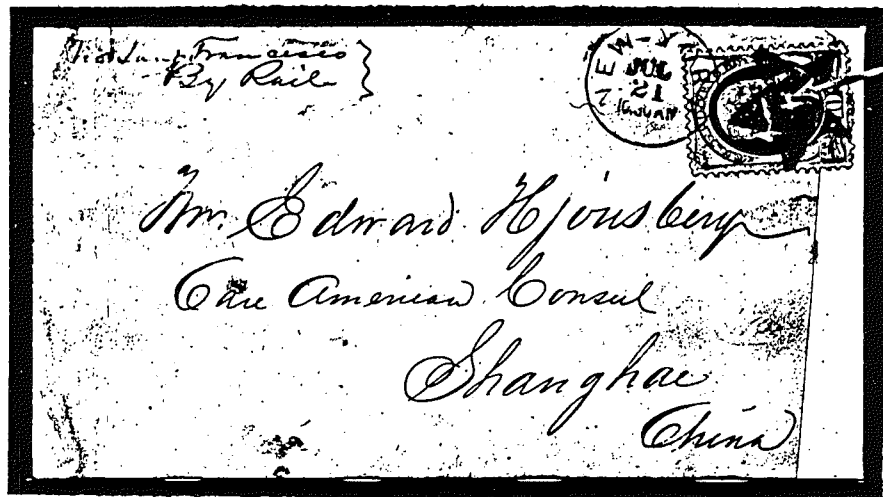 San Francisco
By Rail
NEW-Y
JUL
21
Mr. Edward Hjousbery
Care American Consul
Shanghae
China